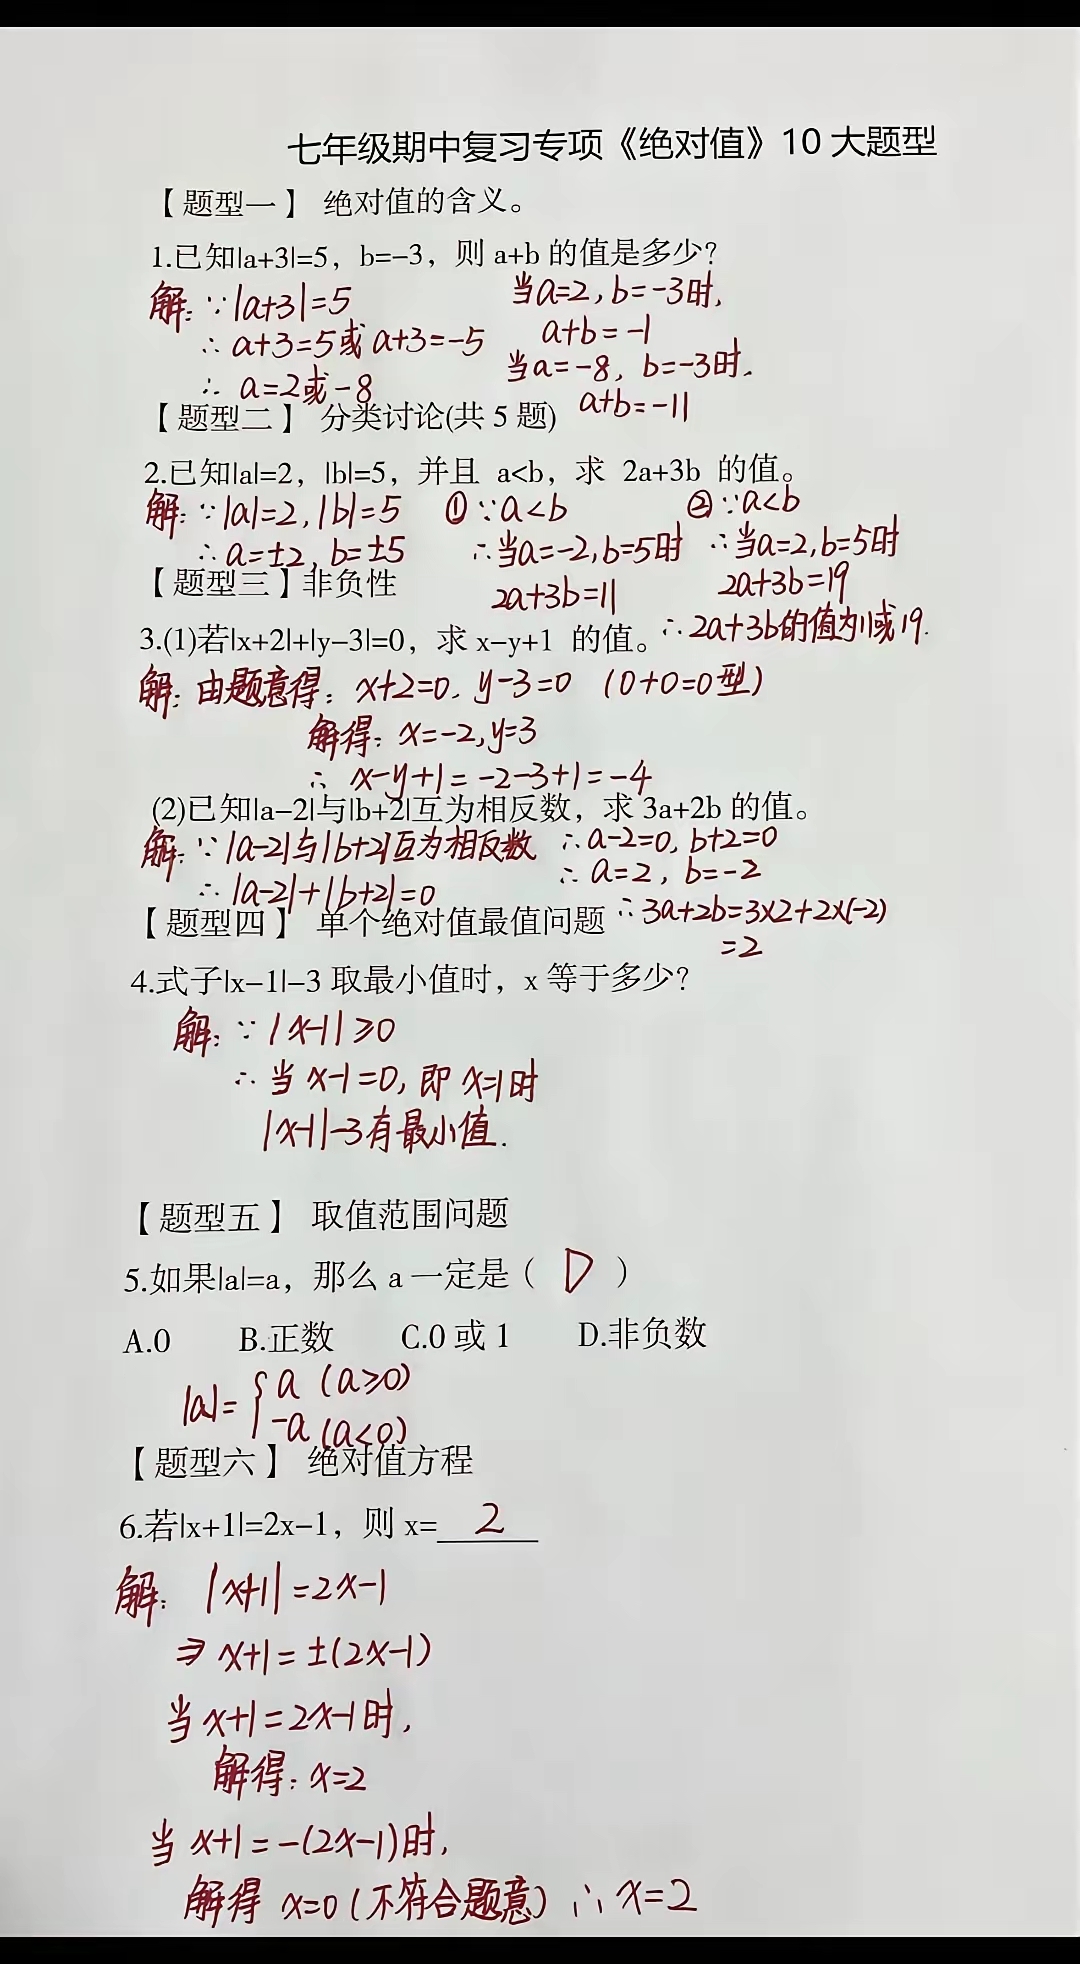 七年级期中复习专项《绝对值》10 大题型
【题型一】 绝对值的含义。
1.已知|a+3|=5，b=-3，则 a+b 的值是多少？
解：∵|a+3|=5
∴ a+3=5或 a+3=-5
∴ a=2或-8
当a=2，b=-3时，
a+b=-1
当a=-8，b=-3时.
a+b=-11
【题型二】 分类讨论(共 5 题)
2.已知|a|=2，|b|=5，并且 a<b，求 2a+3b 的值。
解：∵|a|=2，|b|=5
∴a=±2，b=±5
①∵a<b
∴当a=-2，b=5时
2a+3b=11
②∵a<b
∴当a=2，b=5时
2a+3b=19
∴2a+3b的值为11或19.
【题型三】非负性
3.(1)若|x+2|+|y-3|=0，求 x-y+1 的值。
解：由题意得：x+2=0. y-3=0 (0+0=0型)
解得：x=-2，y=3
∴ x-y+1=-2-3+1=-4
(2)已知|a-2|与|b+2|互为相反数，求 3a+2b 的值。
解：∵|a-2|与|b+2|互为相反数
∴|a-2|+|b+2|=0
∴a-2=0，b+2=0
∴ a=2，b=-2
∴3a+2b=3×2+2×(-2)
=2
【题型四】 单个绝对值最值问题
4.式子|x-1|-3 取最小值时，x 等于多少？
解：∵|x-1|≥0
∴当 x-1=0，即 x=1时
|x-1|-3有最小值.
【题型五】 取值范围问题
5.如果|a|=a，那么 a 一定是（ D ）
A.0 B.正数 C.0 或 1 D.非负数
|a|={a (a≥0)
-a (a<0)
【题型六】 绝对值方程
6.若|x+1|=2x-1，则 x=2
解：|x+1|=2x-1
⇒ x+1=±(2x-1)
当 x+1=2x-1时，
解得：x=2
当 x+1=-(2x-1)时，
解得 x=0(不符合题意) ∴x=2